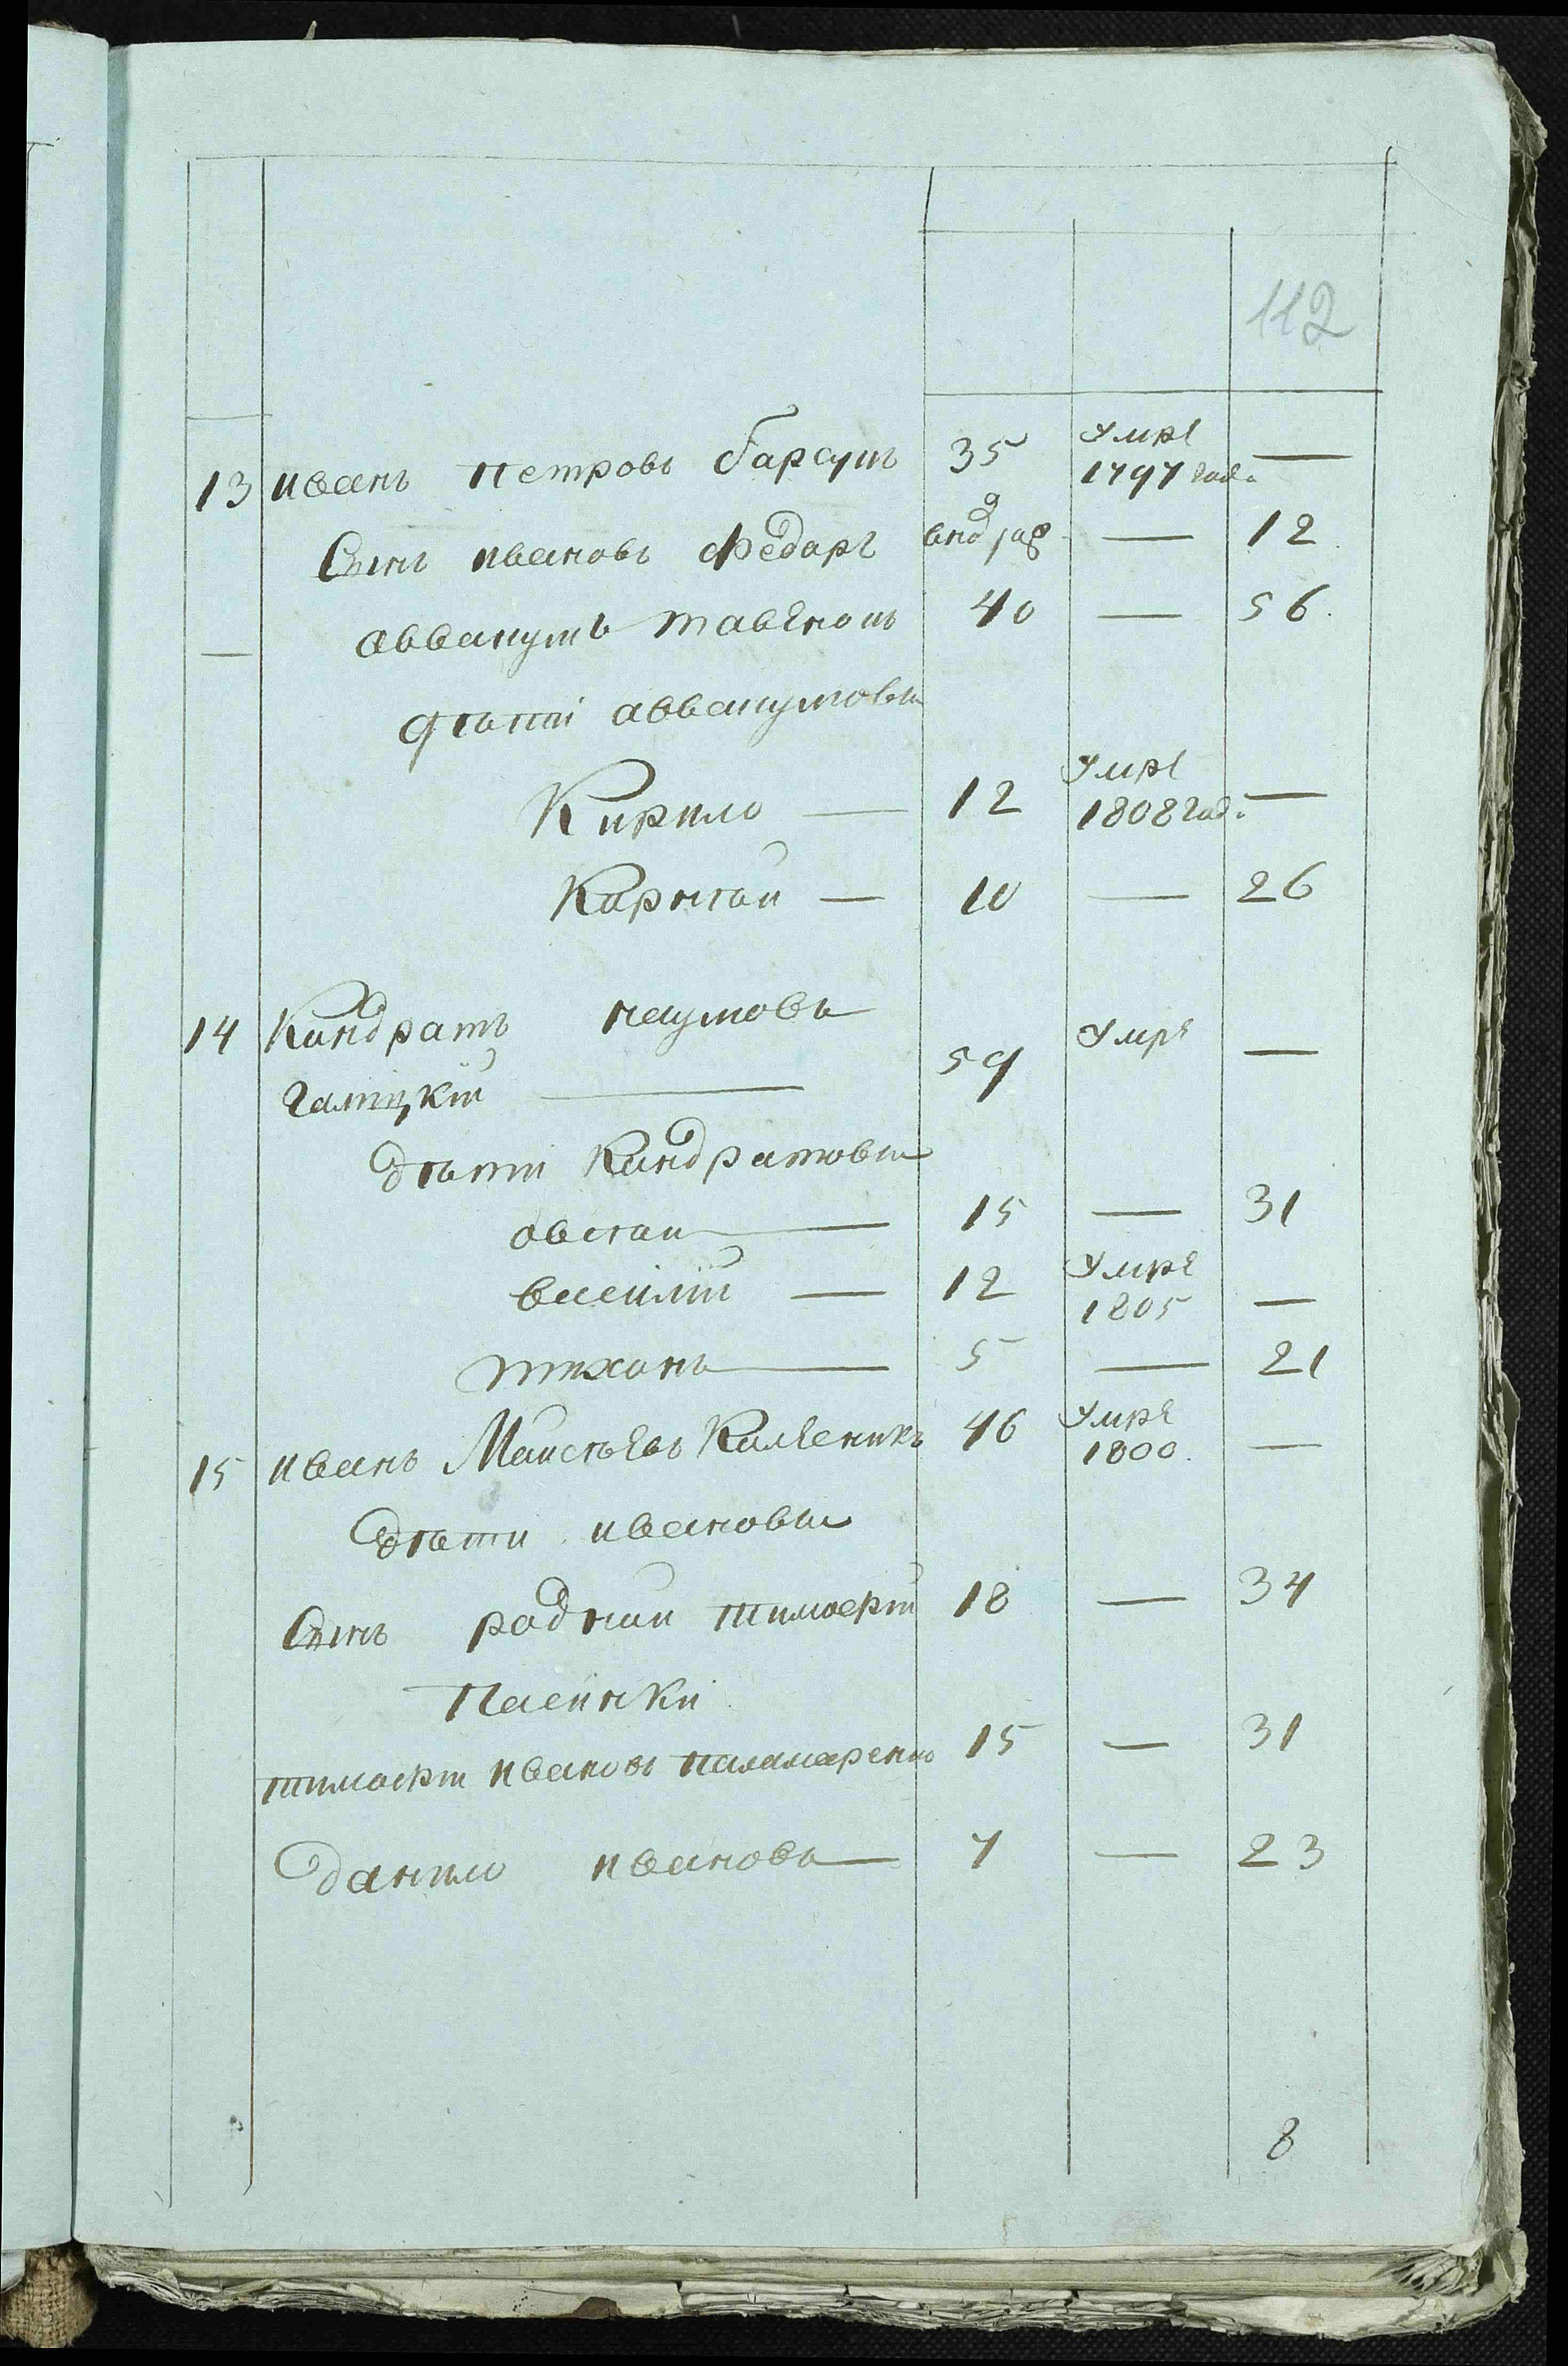 112
13 иванъ петровъ барсукъ 35 умре —
1797 года
Сынъ ивановъ федаръ — 12
аввакумъ 40 — 56
дѣти аввакумовы
Кирило — 12 умре
1808 года —
Карнѣй — 10 — 26
14 Кандратъ наумовъ
галицкiй — 59 умре —
дѣти Кандратовы
авсѣй — 15 — 31
василiй — 12 умре
1805 —
тиханъ — 5 — 21
15 иванъ Маисѣевъ Калѣникъ 46 умре
1800 —
дѣти ивановы
Сынъ родной тимафѣй 18 — 34
Пасынки
тимафей ивановъ паламаренко 15 — 31
данило ивановъ — 7 — 23
8